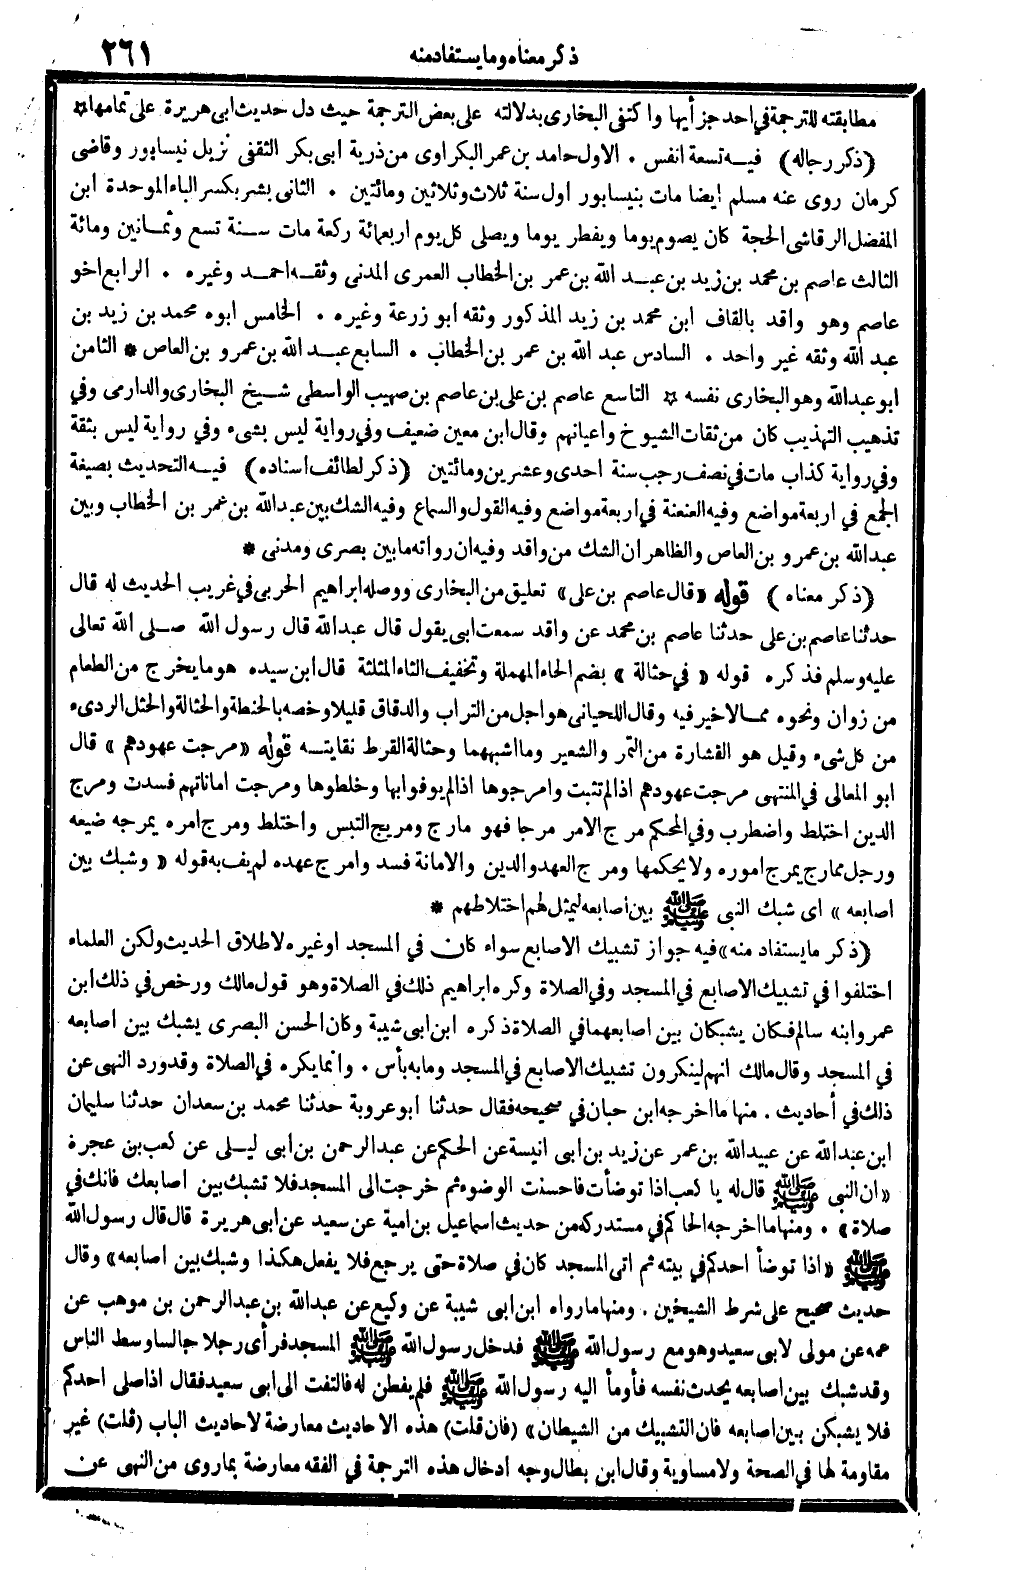 ذكر معناه وما يستفاد منه ٢٦١
مطابقته للترجمة في احد جزأيها واكتفى البخارى بدلالته على بعض الترجمة حيث دل حديث ابى هريرة على تمامها *
(ذكر رجاله) فيه تسعة انفس . الاول حامد بن عمر البكراوى من ذرية ابى بكر الثقفى نزيل نيسابور وقاضى
كرمان روى عنه مسلم أيضا مات بنيسابور اول سنة ثلاث وثلاثين ومائتين . الثانى بشر بكسر الباء الموحدة ابن
المفضل الرقاشى الحجة كان يصوم يوما ويفطر يوما ويصلى كل يوم اربعمائة ركعة مات سنة تسع وثمانين ومائة
الثالث عاصم بن محمد بن زيد بن عبد الله بن عمر بن الخطاب العمرى المدنى وثقه احمد وغيره . الرابع اخو
عاصم وهو واقد بالقاف ابن محمد بن زيد المذكور وثقه ابو زرعة وغيره . الخامس ابوه محمد بن زيد بن
عبد الله وثقه غير واحد . السادس عبد الله بن عمر بن الخطاب . السابع عبد الله بن عمرو بن العاص * الثامن
ابو عبدالله وهو البخارى نفسه * التاسع عاصم بن على بن عاصم بن صهيب الواسطى شيخ البخارى والدارمى وفي
تذهيب التهذيب كان من ثقات الشيوخ واعيانهم وقال ابن معين ضعيف وفي رواية ليس بشىء وفي رواية ليس بثقة
وفي رواية كذاب مات في نصف رجب سنة احدى وعشرين ومائتين (ذكر لطائف اسناده) فيه التحديث بصيغة
الجمع في اربعة مواضع وفيه العنعنة في اربعة مواضع وفيه القول والسماع وفيه الشك بين عبدالله بن عمر بن الخطاب وبين
عبدالله بن عمرو بن العاص والظاهر ان الشك من واقد وفيه ان رواته ما بين بصرى ومدنى *
(ذكر معناه) قوله «قال عاصم بن على» تعليق من البخارى ووصله ابراهيم الحربى في غريب الحديث له قال
حدثنا عاصم بن على حدثنا عاصم بن محمد عن واقد سمعت ابى يقول قال عبدالله قال رسول الله صلى الله تعالى
عليه وسلم فذكره . قوله «في حثالة» بضم الحاء المهملة وتخفيف الثاء المثلثة قال ابن سيده هو ما يخرج من الطعام
من زوان ونحوه مما لاخير فيه وقال اللحيانى هو اجل من التراب والدقاق قليلا وخصه بالحنطة والحثالة والحثل الردىء
من كل شىء وقيل هو القشارة من التمر والشعير وما اشبههما وحثالة القرط نقايته قوله «مرجت عهودهم» قال
ابو المعالى في المنتهى مرجت عهودهم اذا لم تثبت وامرجوها اذا لم يوفوا بها وخلطوها ومرجت اماناتهم فسدت ومرج
الدين اختلط واضطرب وفي المحكم مرج الامر مرجا فهو مارج ومريج التبس واختلط ومرج امره يمرجه ضيعه
ورجل ممارج يمرج اموره ولا يحكمها ومرج العهد والدين والامانة فسد وامرج عهده لم يف به قوله «وشبك بين
اصابعه» اى شبك النبى ﷺ بين اصابعه ليمثل لهم اختلاطهم *
(ذكر ما يستفاد منه» فيه جواز تشبيك الاصابع سواء كان في المسجد اوغيره لاطلاق الحديث ولكن العلماء
اختلفوا في تشبيك الاصابع في المسجد وفي الصلاة وكره ابراهيم ذلك في الصلاة وهو قول مالك ورخص في ذلك ابن
عمر وابنه سالم فكان يشبكان بين اصابعهما في الصلاة ذكره ابن ابى شيبة وكان الحسن البصرى يشبك بين اصابعه
في المسجد وقال مالك انهم لينكرون تشبيك الاصابع في المسجد وما به بأس . وانما يكره في الصلاة وقد ورد النهى عن
ذلك في أحاديث . منها ما اخرجه ابن حبان في صحيحه فقال حدثنا ابو عروبة حدثنا محمد بن سعدان حدثنا سليمان
ابن عبدالله عن عبيدالله بن عمر عن زيد بن ابى انيسة عن الحكم عن عبدالرحمن بن ابى ليلى عن كعب بن عجرة
«ان النبى ﷺ قال له يا كعب اذا توضأت فاحسنت الوضوء ثم خرجت الى المسجد فلا تشبك بين اصابعك فانك في
صلاة» . ومنها ما اخرجه الحاكم في مستدركه من حديث اسماعيل بن امية عن سعيد عن ابى هريرة قال قال رسول الله
ﷺ «اذا توضأ احدكم في بيته ثم اتى المسجد كان في صلاة حتى يرجع فلا يفعل هكذا وشبك بين اصابعه» وقال
حديث صحيح على شرط الشيخين . ومنها ما رواه ابن ابى شيبة عن وكيع عن عبدالله بن عبدالرحمن بن موهب عن
عمه عن مولى لابى سعيد وهو مع رسول الله ﷺ فدخل رسول الله ﷺ المسجد فرأى رجلا جالسا وسط الناس
وقد شبك بين اصابعه يحدث نفسه فأومأ اليه رسول الله ﷺ فلم يفطن له فالتفت الى ابى سعيد فقال اذا صلى احدكم
فلا يشبكن بين اصابعه فان التشبيك من الشيطان» (فان قلت) هذه الاحاديث معارضة لاحاديث الباب (قلت) غير
مقاومة لها في الصحة ولا مساوية وقال ابن بطال وجه ادخال هذه الترجمة في الفقه معارضة بما روى من النهى عن